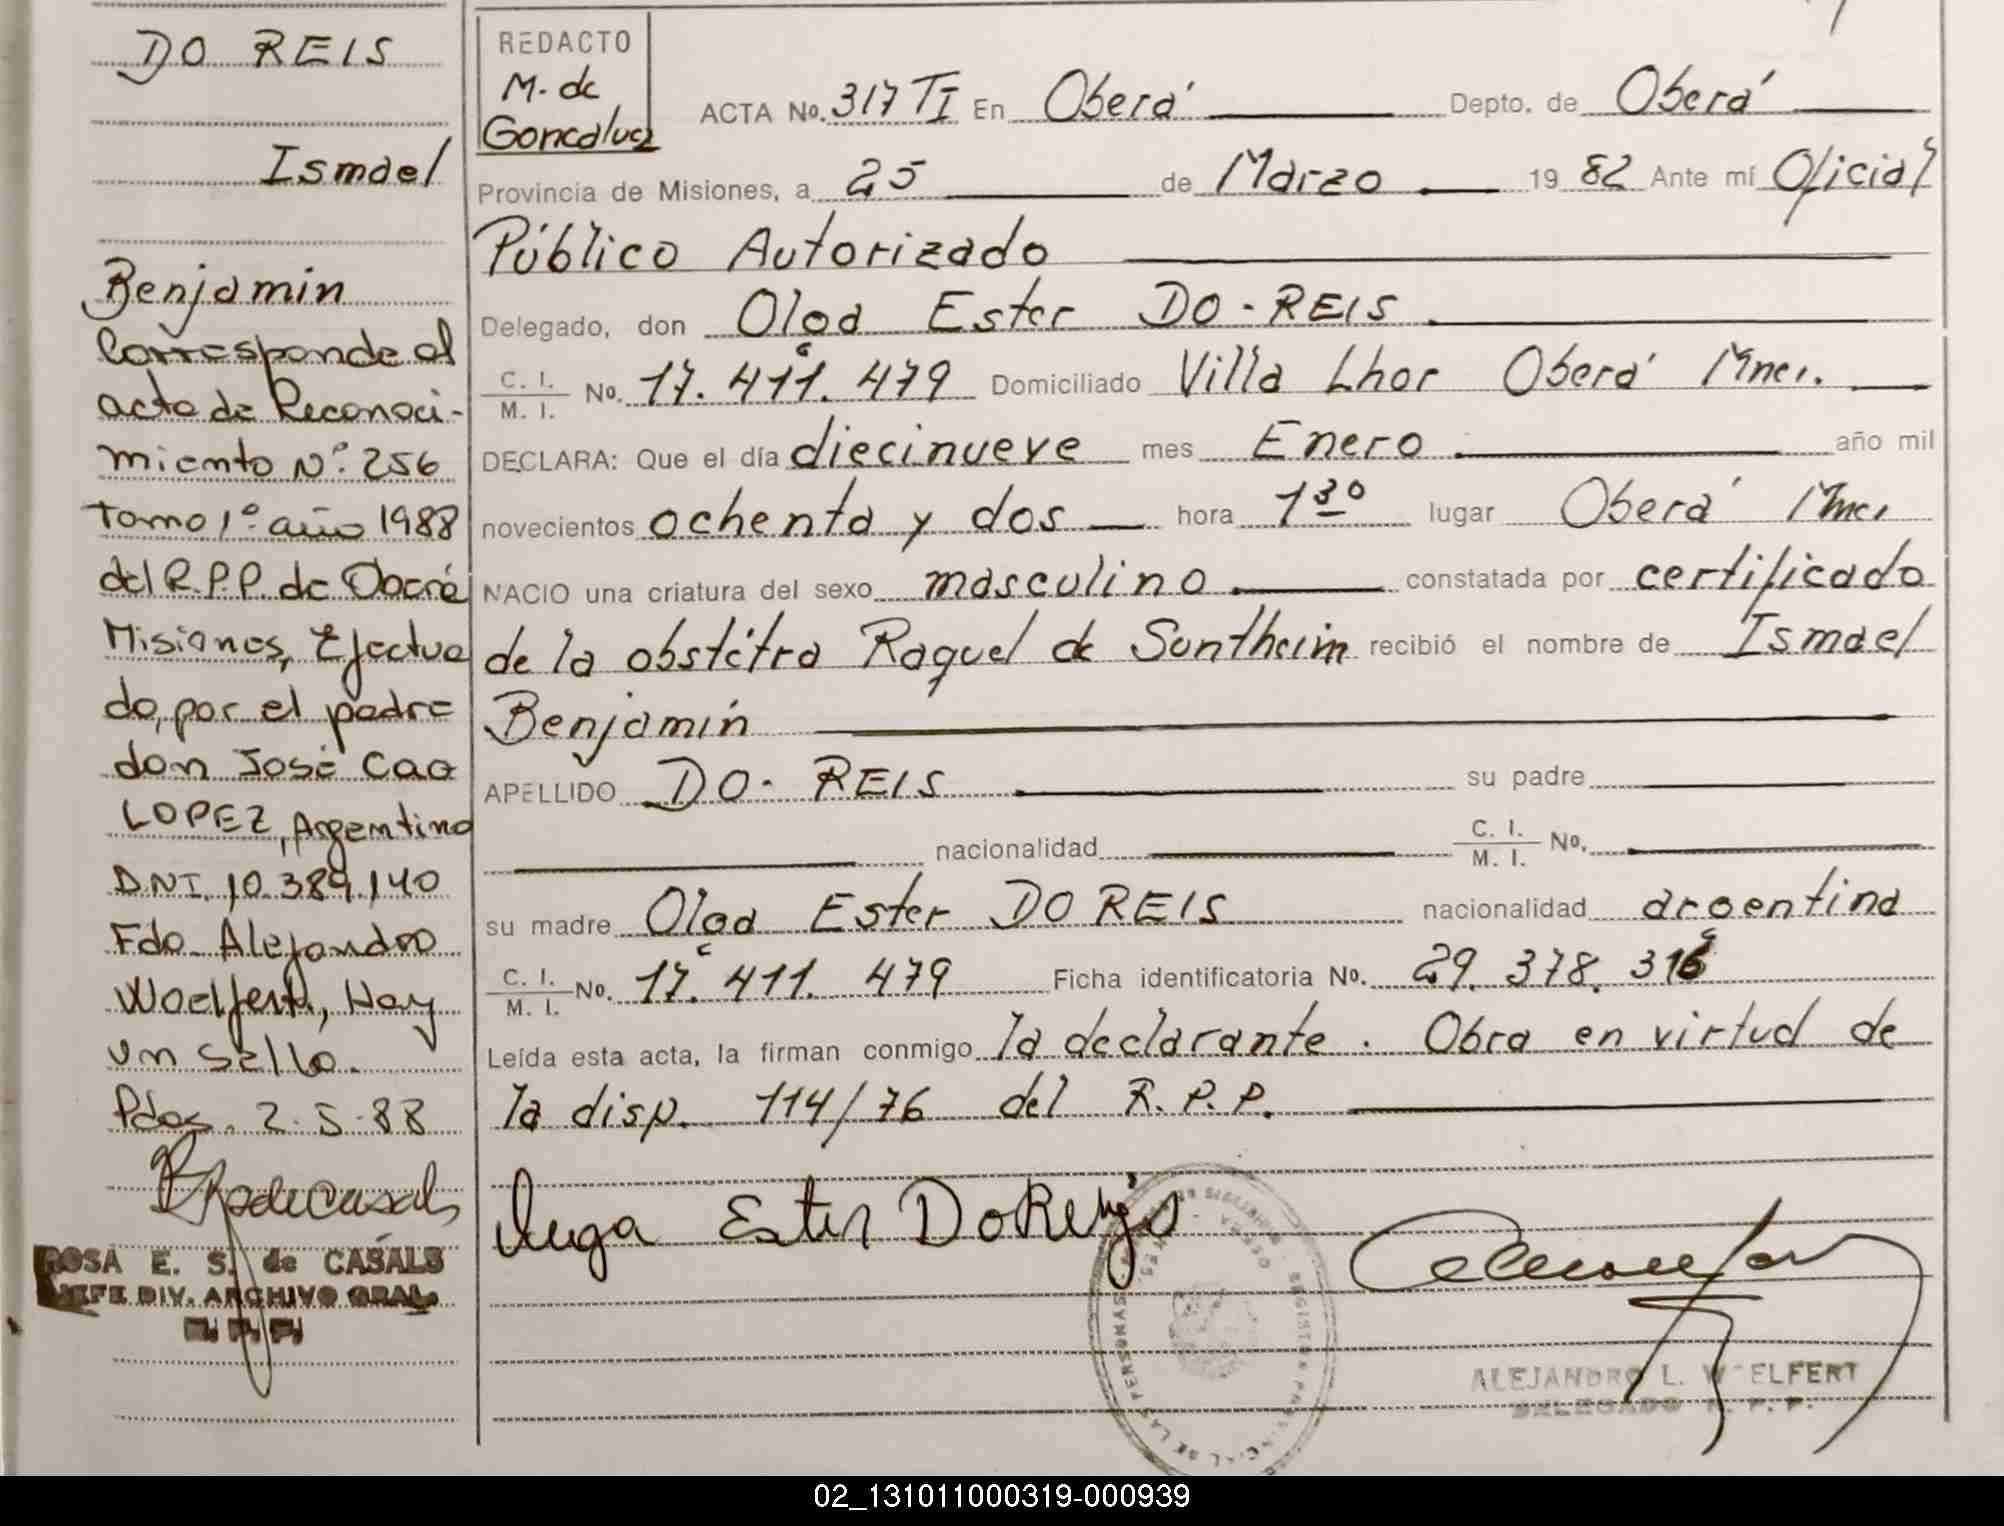 DO REIS
Ismael
Benjamin
Corresponde al
acta de Reconoci-
miento Nº. 256
Tomo 1º. año 1988
del R.P.P. de Oberá
Misiones, Efectua
do, por el padre
don José Cao
LOPEZ, Argentino
DNI. 10.389.140
Fdo. Alejandro
Woelfert, Hay
un sello.
Pdas. 2.5.88
ROSA E. S. de CASALS
JEFE DIV. ARCHIVO GRAL.
R. P. P.
REDACTO
M. de
Goncalvez
ACTA No. 317 TI En Oberá Depto. de Oberá
Provincia de Misiones, a 25 de Marzo 19 82 Ante mí Oficial
Público Autorizado
Delegado, don Olga Ester DO-REIS
C. I. / M. I. No. 17.411.479 Domiciliado Villa Lhor Oberá Mnes.
DECLARA: Que el día diecinueve mes Enero año mil
novecientos ochenta y dos hora 1 30 lugar Oberá Mnes
NACIO una criatura del sexo masculino constatada por certificado
de la obstétra Raquel de Sontheim recibió el nombre de Ismael
Benjamin
APELLIDO DO-REIS su padre
nacionalidad C. I. / M. I. No.
su madre Olga Ester DO REIS nacionalidad argentina
C. I. / M. I. No. 17.411.479 Ficha identificatoria No. 29.378.316
Leída esta acta, la firman conmigo la declarante. Obra en virtud de
la disp. 114/76 del R.P.P.
Ester DoReijs
ALEJANDRO L. WOELFERT
DELEGADO R. P. P.
REGISTRO PROVINCIAL DE LAS PERSONAS
02_131011000319-000939